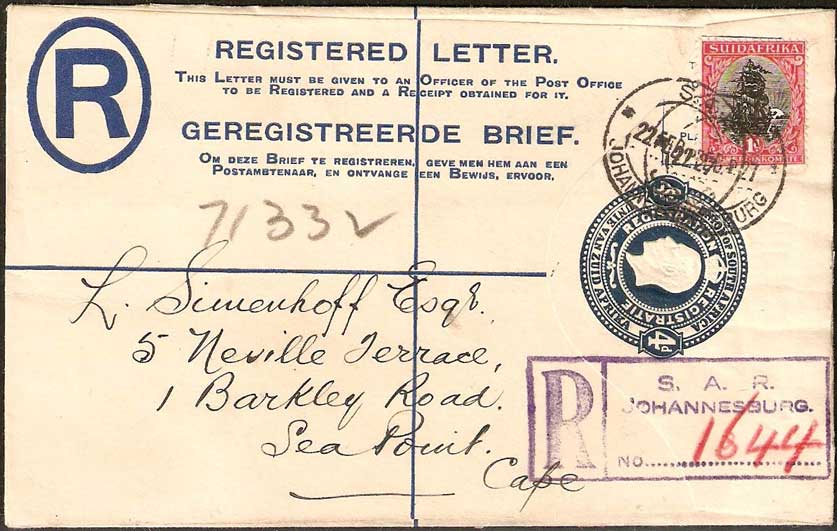 R
REGISTERED LETTER.
THIS LETTER MUST BE GIVEN TO AN OFFICER OF THE POST OFFICE
TO BE REGISTERED AND A RECEIPT OBTAINED FOR IT.
GEREGISTREERDE BRIEF.
OM DEZE BRIEF TE REGISTREREN, GEVE MEN HEM AAN EEN
POSTAMBTENAAR, EN ONTVANGE EEN BEWIJS, ERVOOR.
7133
SUIDAFRIKA
JOHANNESBURG
REGISTRATION
REGISTRATIE
UNION OF SOUTH AFRICA
UNIE VAN ZUID AFRIKA
4d
L. Simenhoff Esqr.
5 Neville Terrace,
1 Barkley Road.
Sea Point.
Cape
R
S. A. R.
JOHANNESBURG.
No. 1644